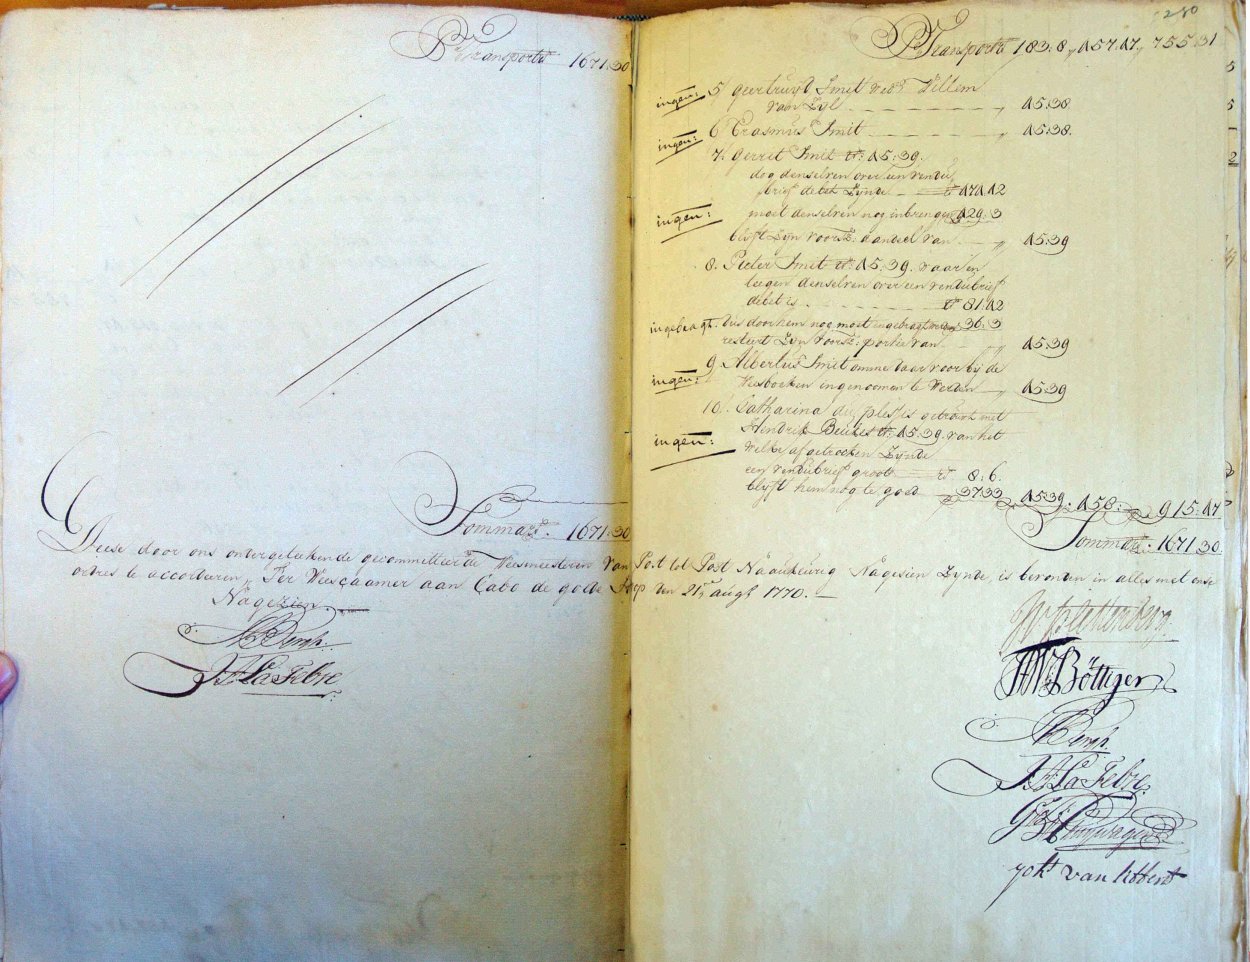 P. Transporte 1671:30
Sommas. 1671:30
Deese door ons ondergeteekende gecommitteerde Weesmeesteren Van Post tot Post Naaukeurig Nagesien Zynde, is bevonden in alles met onse
ordres te accorderen, Ter Weescaamer aan Cabo de goede Hoop den 21. augt. 1770.
Nagezien
Bergh.
J: A: La Febre
280
P. Transporte 183:8, 157.17, 755:31
ingen: 5 geertruyd Smit wedե Willem
van Zyl 15:38.
ingen: 6 Erasmus Smit 15:38.
7. Gerrit Smit 15:39.
dog denselven over een vendu
brief debet Zynde 171.12
ingen: moet denselven nog inbrengen 129:3
blyft Zyn voorsz: aandeel van 15:39
8. Pieter Smit 15:39. waar en
teegen denselven over een vendubrief
debet is 81:12
ingebragt. dus door hem nog moet ingebragt werden 36:3
resteert Zyn voorsz: portie van 15:39
9 Albertus Smit omme daar voor by de
ingen: Weesboeken ingenoomen te Werden 15:39
10. Catharina du ples:is getrouwt met
Hendrik Beukes 15:39. van het
ingen: Welke afgetrocken Zynde
een vendubrief groot 8:6.
blyft hem nog te goed 37:33 1539. 158: 915.17
Sommas. 1671 30.
Plettenberg.
Böttiger
Bergh.
J: A: La Febre
Joh: van Sittert